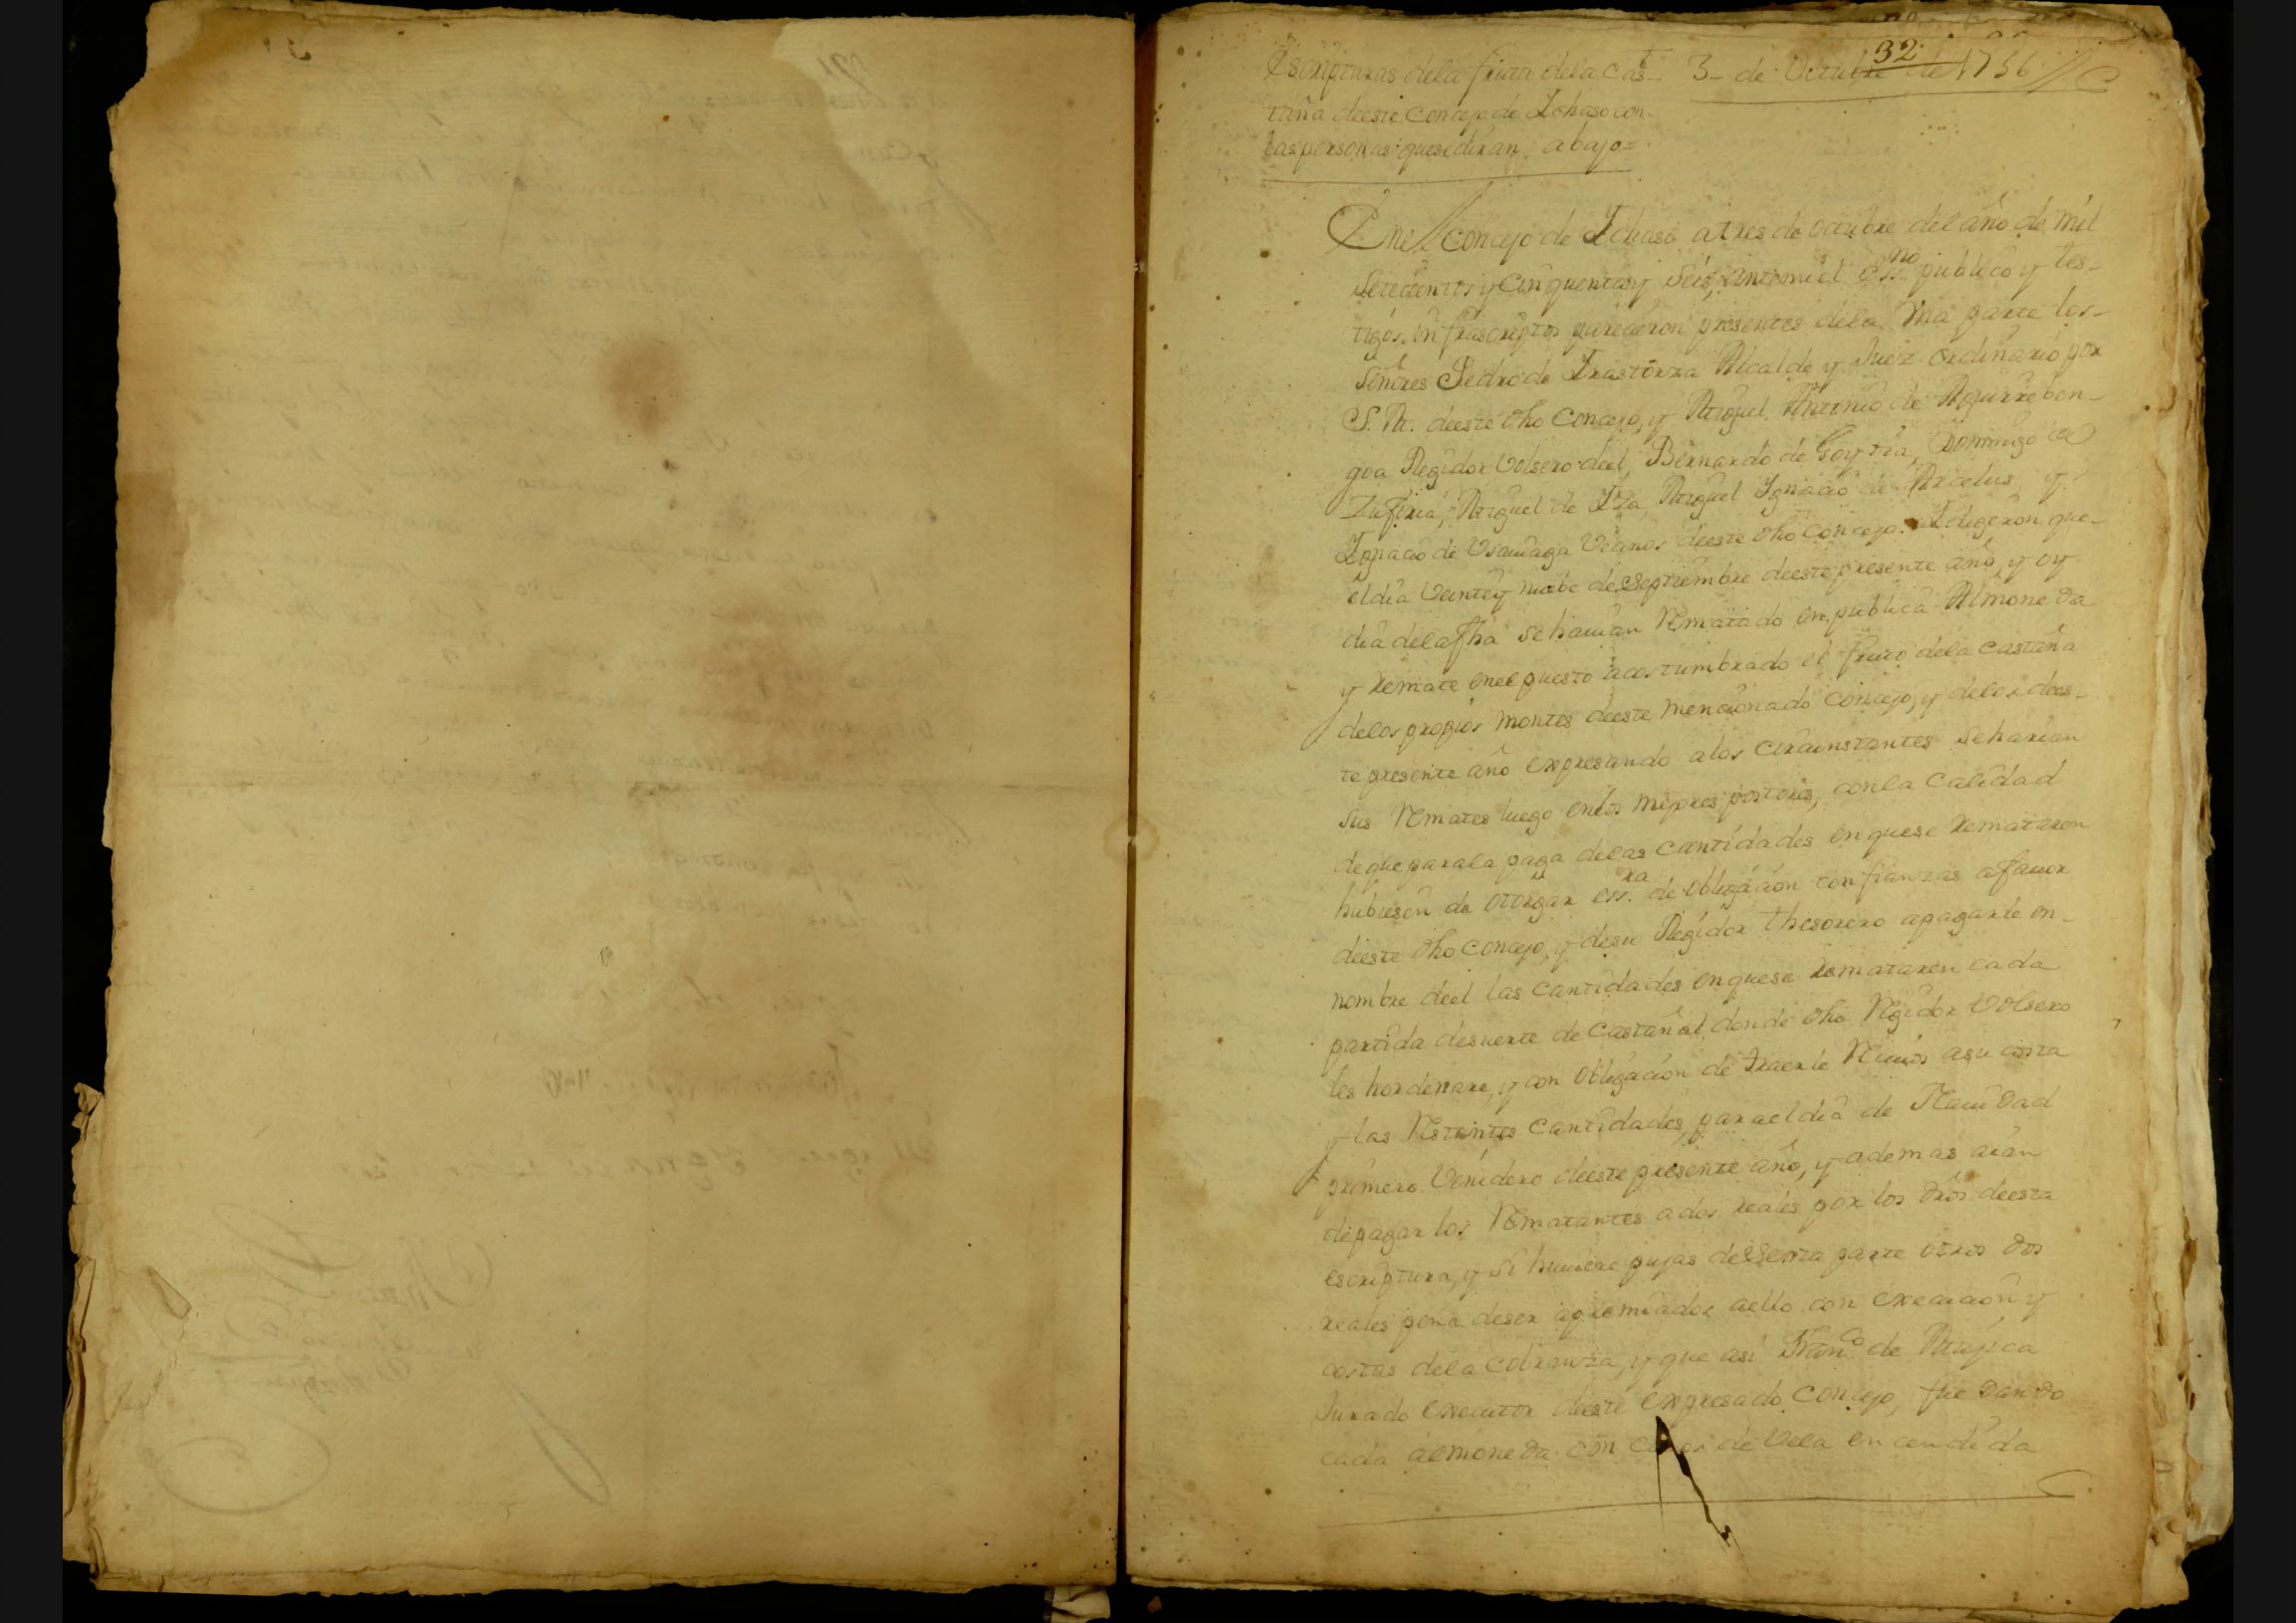 32
Escripturas dela fruta dela cas- 3- de Octubre de 1756
taña deeste Concejo de Ichaso con
las personas que se diran abajo=
Enel Concejo de Ichaso atres de octubre del año de mil
Setecientos y Cinquenta y Seis, antemi el essno publico y tes-
tigos infrascriptos parecieron presentes dela Vna parte los-
Señores Pedro de Irastorza Alcalde y Juez ordinario por
S. M. deeste dho Concejo, y Miguel Antonio de Aguirreben-
goa Regidor Volsero deel, Bernardo de Goytia, Domingo de
Zufiria, Miguel de Iza, Miguel Ignacio de Arcelus y
Ignacio de Vsauiaga Vecinos deeste dho Concejo. I digeron que-
el dia Veinte y nuebe de Septiembre deeste presente año, y oy
dia dela fha se hauian Rematado en publica Almoneda
y Remate enel puesto acostumbrado el fruto dela castaña
delos propios montes deeste mencionado Concejo, y delos dees-
te presente año expresando alos circunstantes se harian
sus Remates luego enlos mejores postores, con la Calidad
de que para la paga delas cantidades en que se Remataren
hubiesen de otorgar essra de obligacion con fianzas afauor
deeste dho Concejo, y desu Regidor thesorero apagarle en-
nombre deel las cantidades en que se Remataren cada
partida desuerte de Castañal donde dho Regidor Volsero
les hordenare, y con obligacion de traerle Reciuos asu costa
y las Restantes Cantidades para el dia de Nauidad
primero Venidero deeste presente año, y ademas aian
de pagar los Rematantes ados reales por los dros deesta
escriptura, y si huuiere pujas de sexta parte otros dos
reales pena deser apremiados aello con execucion y
costas dela cobranza, y que asi Franco de Mujica
Jurado executor deeste expresado Concejo, fue dando
cada almoneda con cauos de Vela encendida